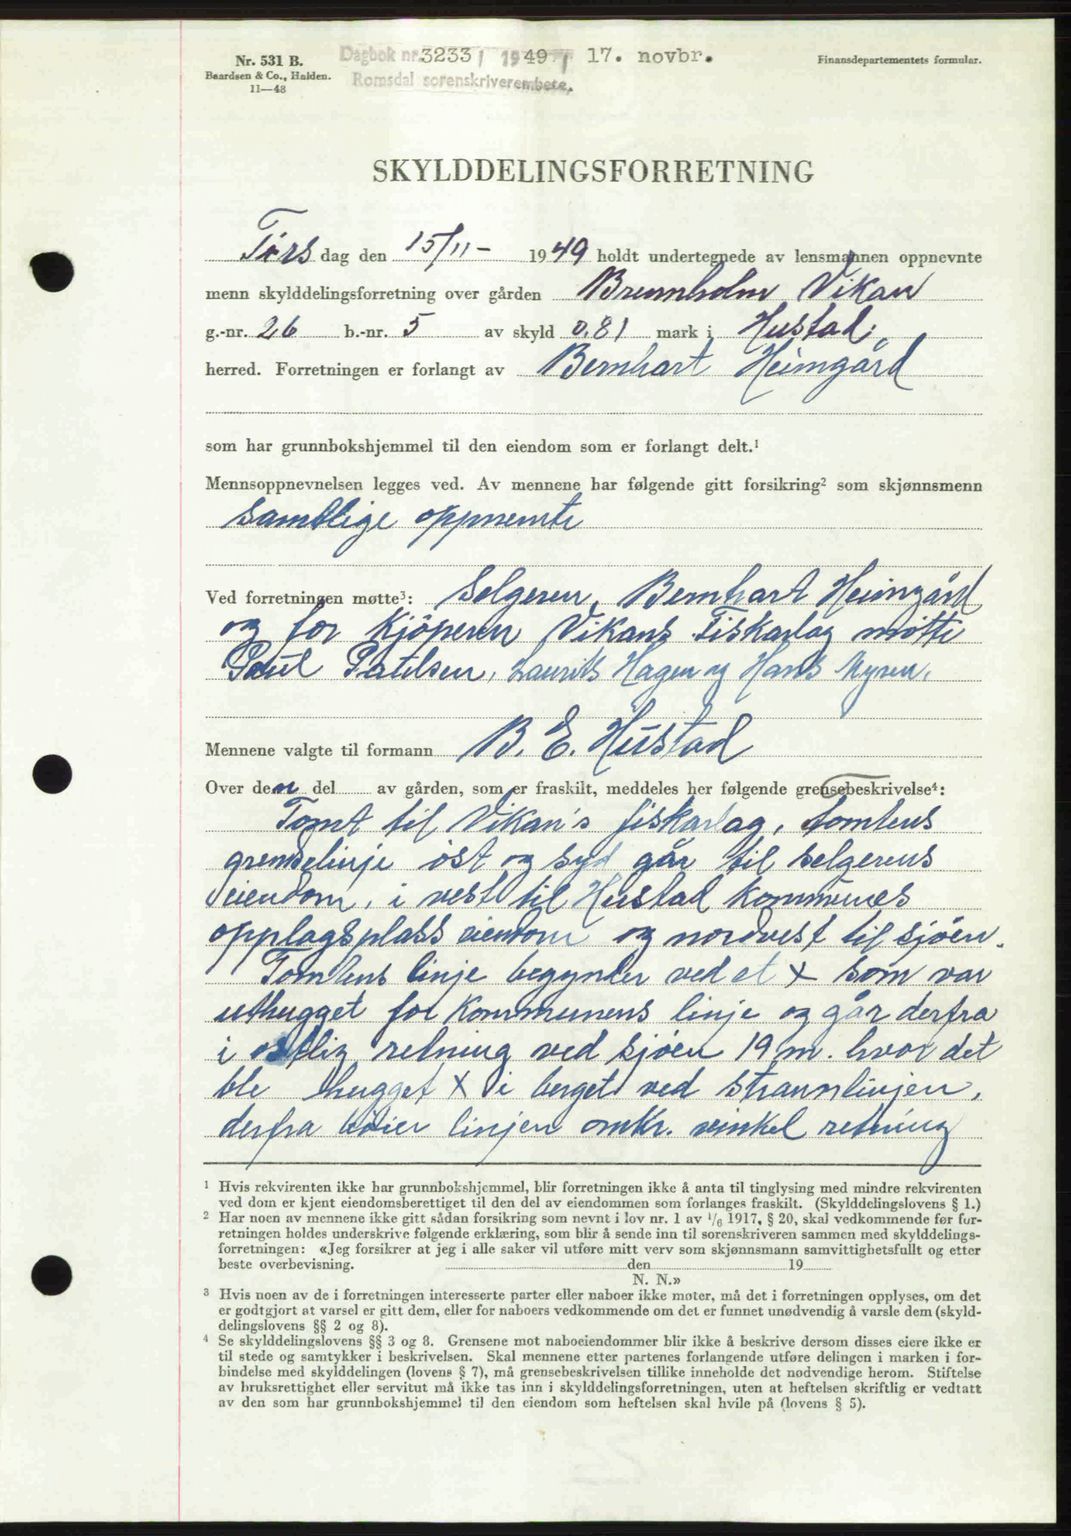 Nr. 531 B.
Baardsen & Co., Halden.
11—48
Dagbok nr. 3233 / 1949 / 17. novbr.
Romsdal sorenskriverembete.
Finansdepartementets formular.
SKYLDDELINGSFORRETNING
Tirs dag den 15/11- 1949 holdt undertegnede av lensmannen oppnevnte
menn skylddelingsforretning over gården Bremholm Vikan
g.-nr. 26 b.-nr. 5 av skyld 0.81 mark i Hustad
herred. Forretningen er forlangt av Bernhart Heimgård
som har grunnbokshjemmel til den eiendom som er forlangt delt.¹
Mennsoppnevnelsen legges ved. Av mennene har følgende gitt forsikring² som skjønnsmenn
samtlige oppnemte
Ved forretningen møtte³: Selgeren, Bernhart Heimgård
og for Kjöperen Vikans Fiskarlag møtte
Paul Hagen og Hans Myren.
Mennene valgte til formann B. E. Hustad
Over den del av gården, som er fraskilt, meddeles her følgende grensebeskrivelse⁴:
Tomt til Vikan's fiskarlag, tomtens
grenselinje öst og syd går til selgerens
eiendom, i vest til Hustad kommunes
opplagsplass eiendom og nordvest til sjöen.
Tomtens linje begynter ved et x som var
uthugget for Kommunens linje og går derfra
i östlig retning ved sjöen 19 m. hvor det
ble hugget x i berget ved straumlinjen,
derfra böier linjen omkr. vinkel retning
¹ Hvis rekvirenten ikke har grunnbokshjemmel, blir forretningen ikke å anta til tinglysing med mindre rekvirenten
ved dom er kjent eiendomsberettiget til den del av eiendommen som forlanges fraskilt. (Skylddelingslovens § 1.)
² Har noen av mennene ikke gitt sådan forsikring som nevnt i lov nr. 1 av ¹/₆ 1917, § 20, skal vedkommende før for-
retningen holdes underskrive følgende erklæring, som blir å sende inn til sorenskriveren sammen med skylddelings-
forretningen: «Jeg forsikrer at jeg i alle saker vil utføre mitt verv som skjønnsmann samvittighetsfullt og etter
beste overbevisning. den 19
N. N.»
³ Hvis noen av de i forretningen interesserte parter eller naboer ikke møter, må det i forretningen opplyses, om det
er godtgjort at varsel er gitt dem, eller for naboers vedkommende om det er funnet unødvendig å varsle dem (skyld-
delingslovens §§ 2 og 8).
⁴ Se skylddelingslovens §§ 3 og 8. Grensene mot naboeiendommer blir ikke å beskrive dersom disses eiere ikke er
til stede og samtykker i beskrivelsen. Skal mennene etter partenes forlangende utføre delingen i marken i for-
bindelse med skylddelingen (lovens § 7), må grensebeskrivelsen tillike inneholde det nødvendige herom. Stiftelse
av bruksrettighet eller servitut må ikke tas inn i skylddelingsforretningen, uten at heftelsen skriftlig er vedtatt
av den som har grunnbokshjemmel til den eiendom som heftelsen skal hvile på (lovens § 5).